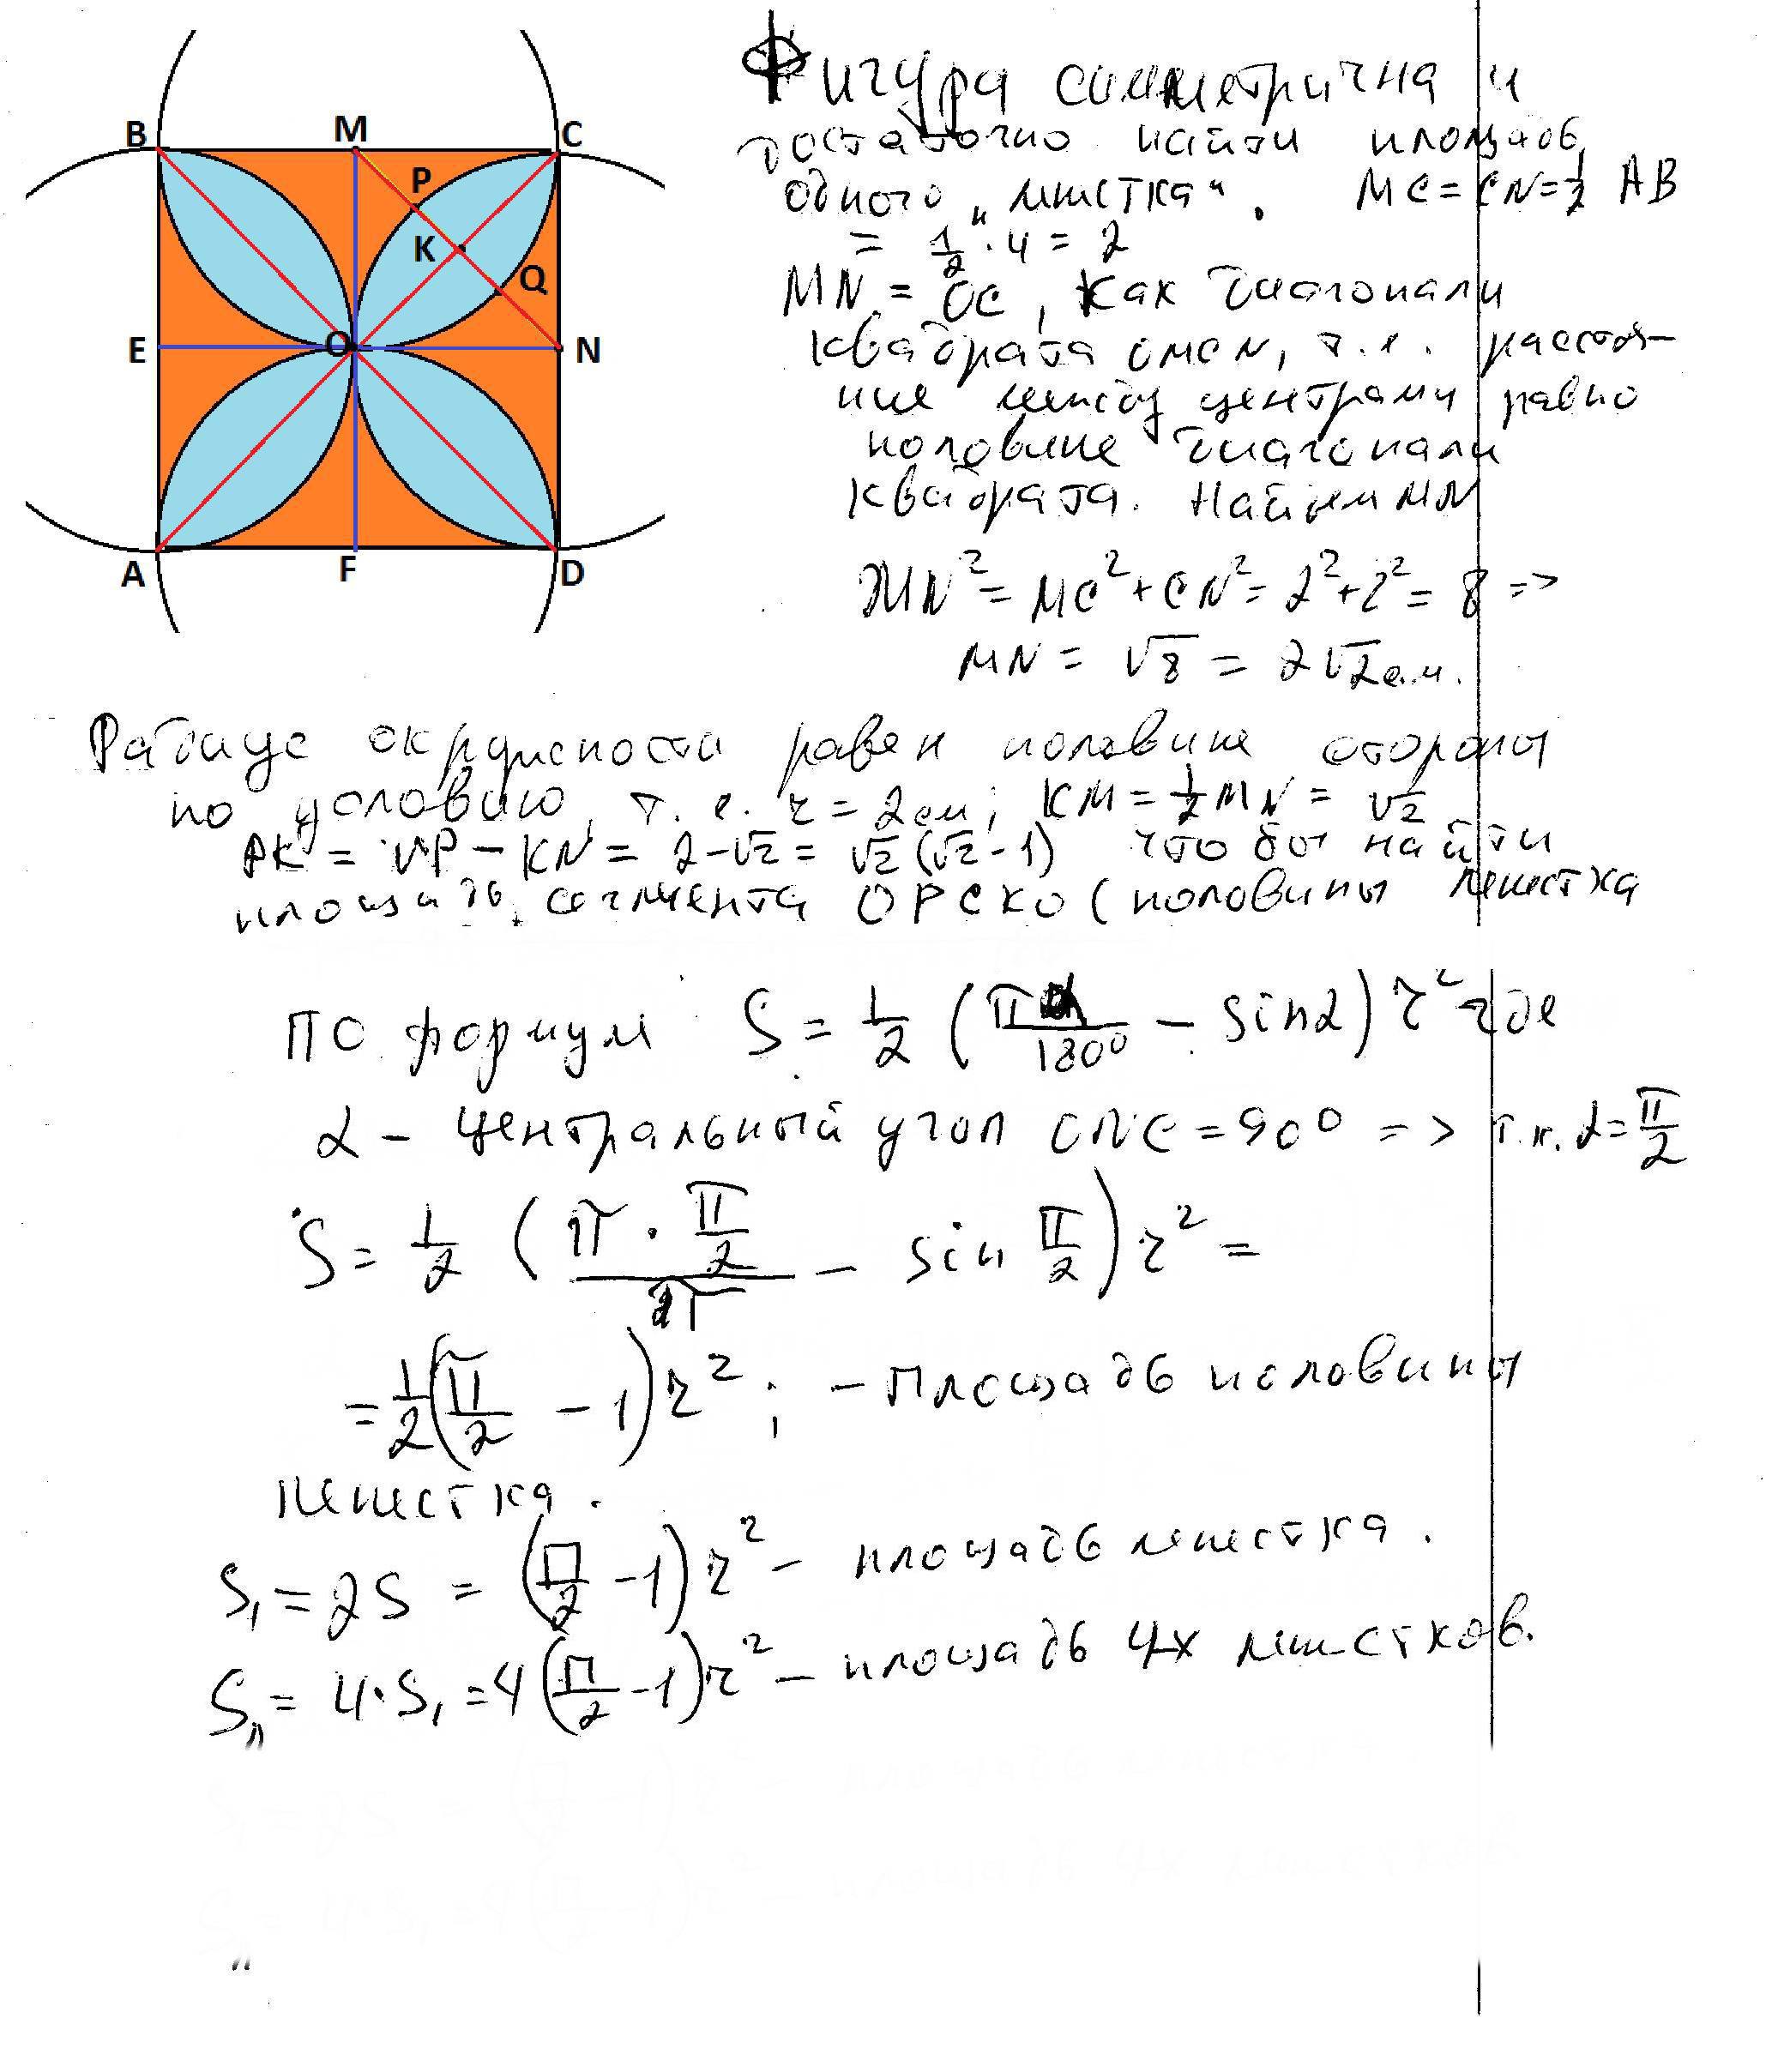 B M C
P
K
Q
E O N
A F D
Фигура симметрична и
достаточно найти площадь
одного "лепестка". MC = CN = 1/2 AB
= 1/2 · 4 = 2
MN = OC, как диагонали
квадрата OMCN, т.е. расстоя-
ние между центрами равно
половине диагонали
квадрата. Найдем MN
MN² = MC² + CN² = 2² + 2² = 8 =>
MN = √8 = 2√2 см.
Радиус окружности равен половине стороны
по условию, т.е. r = 2 см; KM = 1/2 MN = √2
PK = NP - KN = 2-√2 = √2 (√2-1) что бы найти
площадь сегмента OPCKO (половины лепестка
по формул S = 1/2 (πα/180° - sinα) r² где
α - центральный угол ONC = 90° => т.к. α = π/2
S = 1/2 (π · π/2 / π - sin π/2) r² =
= 1/2 (π/2 - 1) r²; - площадь половины
лепестка.
S₁ = 2S = (π/2 - 1) r² - площадь лепестка.
Sл = 4·S₁ = 4 (π/2 - 1) r² - площадь 4х лепестков.